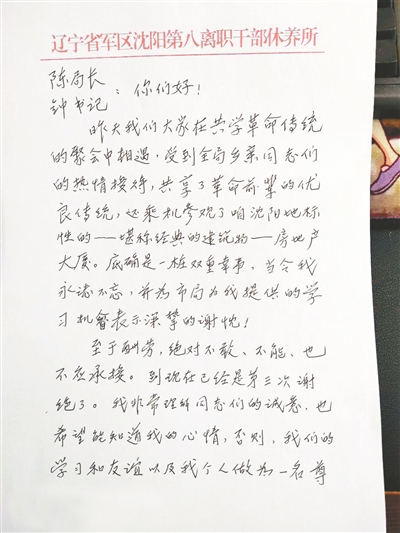 辽宁省军区沈阳第八离职干部休养所
陈局长
钟书记：你们好！
昨天我们大家在共学革命传统
的聚会中相遇，受到全局乡亲、同志们
的热情接待，共享了革命前辈的优
良传统，还乘机参观了咱沈阳地标
性的——堪称经典的建筑物——房地产
大厦。底确是一桩双重幸事，当令我
永志不忘，并为市局为我提供的学
习机会表示深挚的谢忱！
至于酬劳，绝对不敢、不能、也
不应承接。到现在已经是第三次谢
绝了。我非常理解同志们的诚意，也
希望能知道我的心情，否则，我们的
学习和友谊以及我个人做为一名尊